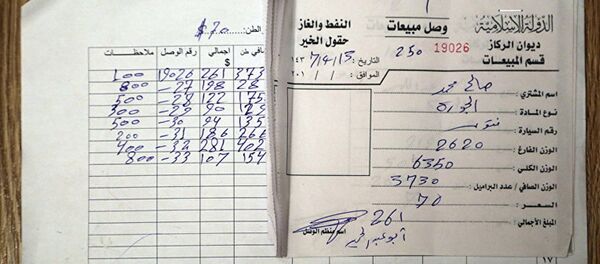 الدولة الإسلامية
ديوان الركاز
قسم المبيعات
وصل مبيعات
19026 250
النفط والغاز
حقول الخير
التاريخ: ١٤٣
الموافق: / / ٢٠١
اسم المشتري: محمد
نوع المادة:
رقم السيارة:
الوزن الفارغ: 2620
الوزن الكلي: 6350
الوزن الصافي / عدد البراميل: 3730
السعر: 70
المبلغ الإجمالي: 261
اسم منظم الوصل
الطن: $70
صافي طن اجمالي $ رقم الوصل ملاحظات
373 261 19026 100
28 198 -27 800
175 122 -28 500
90 300
135 94 -30 500
266 186 -31 200
402 281 -32 400
154 107 -33 800